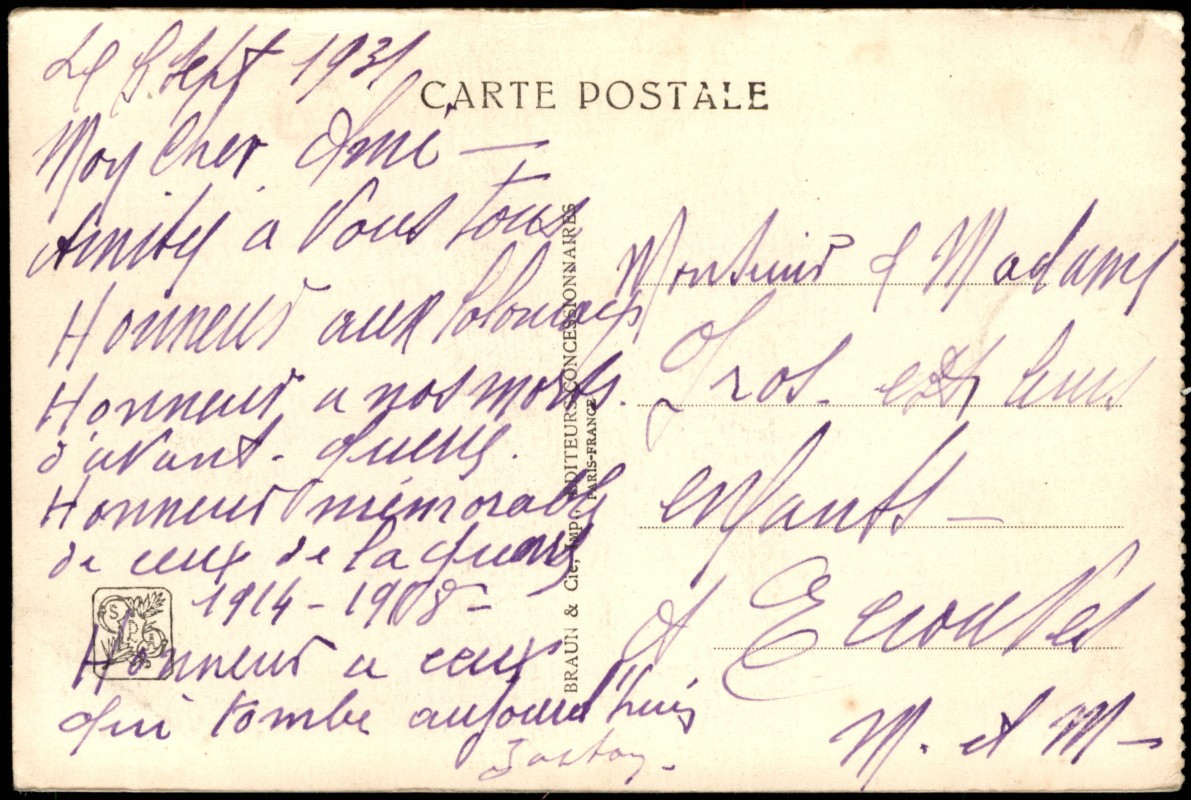 Le 8 Sept 1931
CARTE POSTALE
Mon Cher Ami —
Amitié a Vous tous
Honneur aux Coloniaux
Honneur a nos morts.
d'avant-guerre.
Honneur mémorable
de ceux de la guerre
1914 - 1918 -
Honneur a ceux
qui tombe aujourd'hui
Gaston.
BRAUN & Cie, IMP., EDITEURS-CONCESSIONNAIRES
PARIS-FRANCE
Monsieur & Madame
Gros. et leurs
enfants —
a Ecrouves
M. et M —